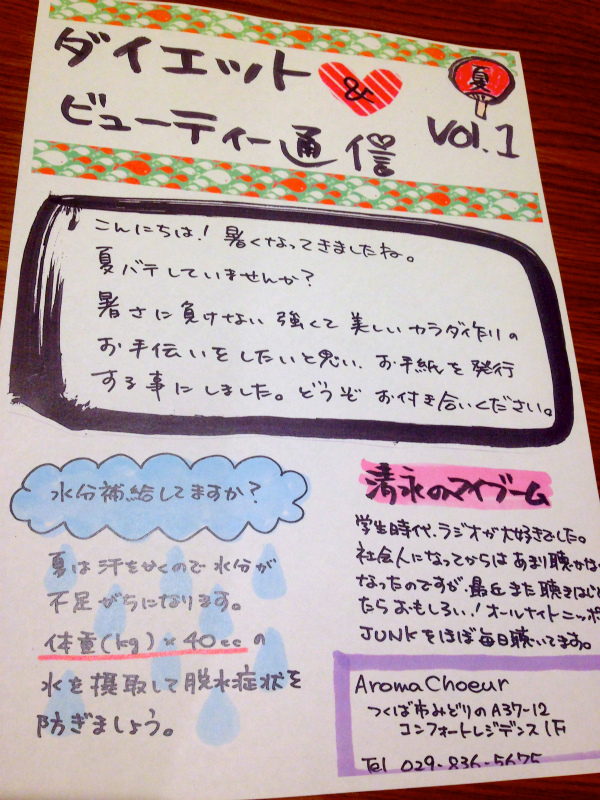 ダイエット &
ビューティー通信
夏
Vol.1
こんにちは! 暑くなってきましたね。
夏バテしていませんか?
暑さに負けない 強くて 美しい カラダ作りの
お手伝いをしたいと思い、お手紙を発行
する事にしました。どうぞ お付き合いください。
水分補給してますか?
夏は汗をかくので 水分が
不足がちになります。
体重(kg)×40cc の
水を摂取して脱水症状を
防ぎましょう。
清永のマイブーム
学生時代、ラジオが大好きでした。
社会人になってからは あまり聴かな
なったのですが、最近また聴きはじ
たらおもしろい! オールナイトニッポ
JUNKをほぼ毎日聴いてます。
AromaChoeur
つくば市みどりのA37-12
コンフォートレジデンス1F
Tel 029-836-5675